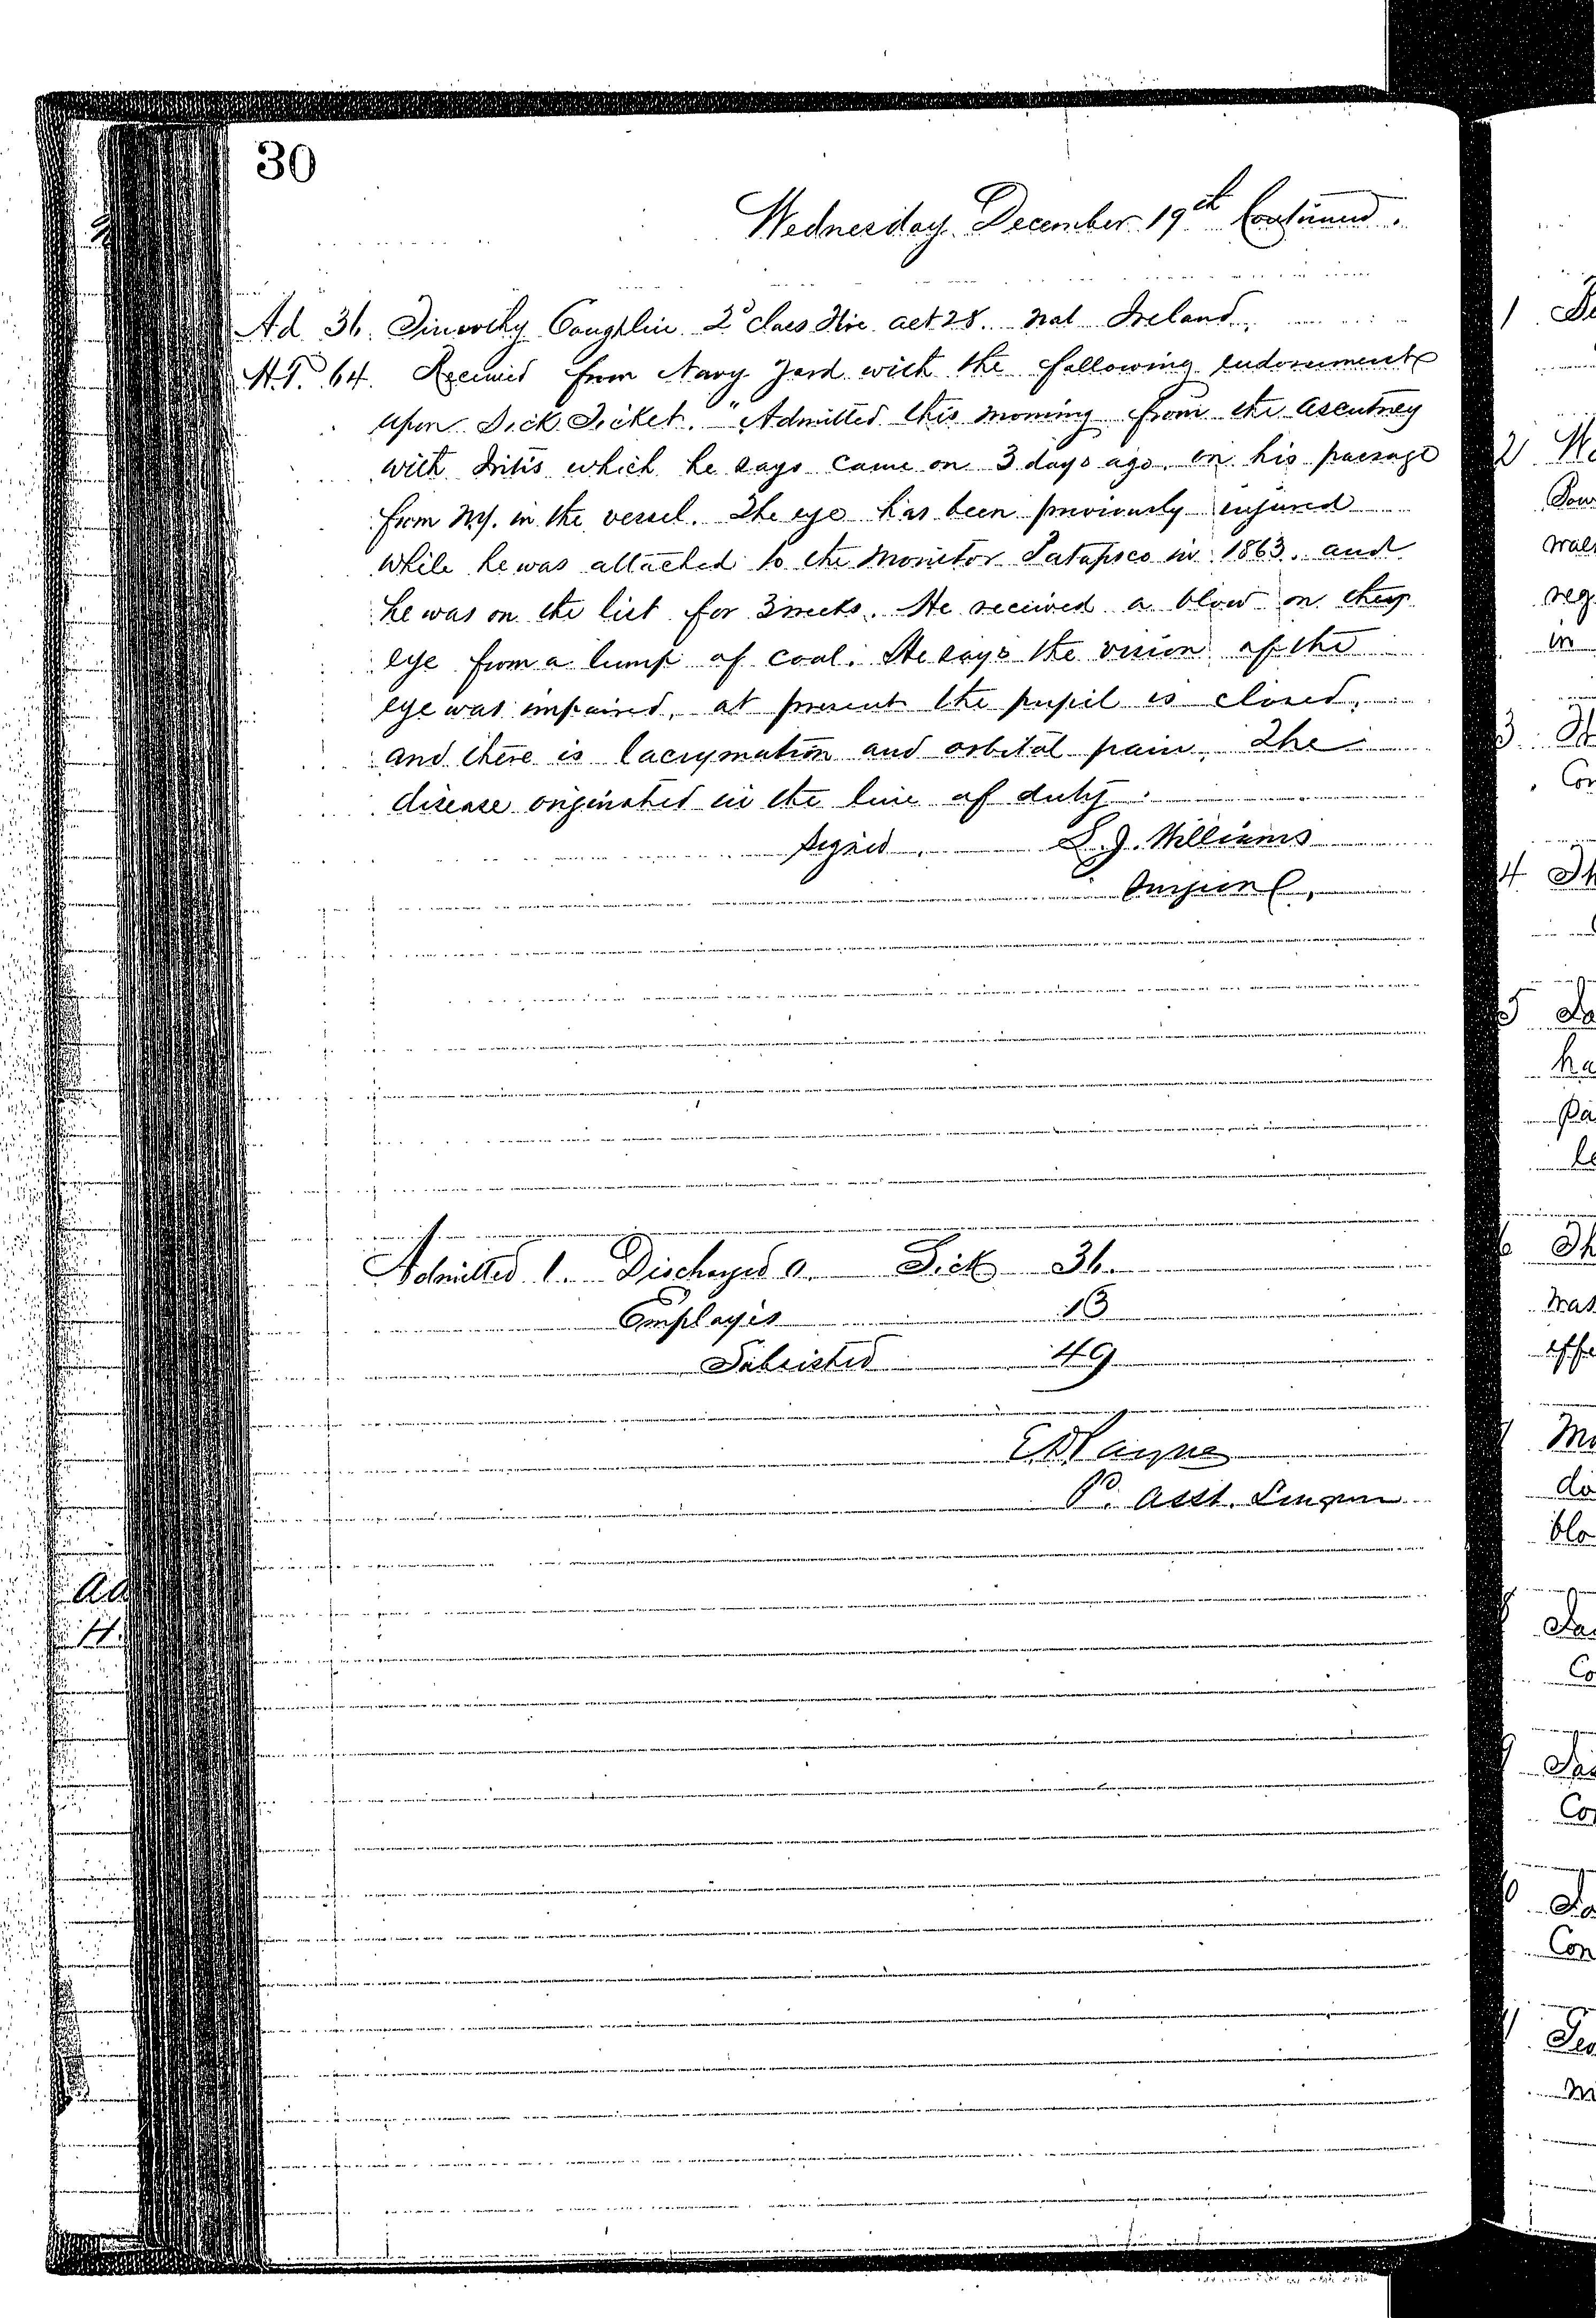 30
Wednesday December 19th Continued.
Ad 36. Timothy Coughlin 2d Class Fire aet 28. nat Ireland.
H.T. 64. Received from Navy Yard with the following endorsement
upon Sick Ticket. "Admitted this morning from the Ascutney
with Iritis which he says came on 3 days ago. on his passage
from N.Y. in the vessel. The eye has been previously injured
while he was attached to the Monitor Patapsco in 1863. and
he was on the list for 3 weeks. He received a blow on the
eye from a lump of coal. He says the vision of the
eye was impaired, at present the pupil is closed,
and there is lacrymation and orbital pain. The
disease originated in the line of duty.
Signed. L.J. Williams
Surgeon
Admitted 1. Discharged 0. Sick 36.
Employés 13
Subsisted 49
E.D. Payne
Pd. Asst. Surgeon
Ad
H.
1
2
Pow
reg
in
3
Con
4 Th
5
ha
pa
le
6 Th
was
effe
Mo
di
blo
Co
9
Co
Con
Geo